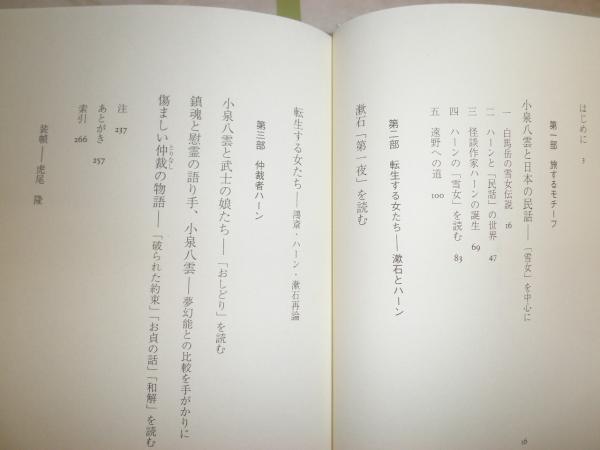 はじめに 3
第一部 旅するモチーフ
小泉八雲と日本の民話――「雪女」を中心に
一 白馬岳の雪女伝説 16
二 ハーンと「民話」の世界 47
三 怪談作家ハーンの誕生 69
四 ハーンの「雪女」を読む 83
五 遠野への道 100
第二部 転生する女たち――漱石とハーン
漱石「第一夜」を読む
16
転生する女たち――鴻斎・ハーン・漱石再論
第三部 仲裁者ハーン
小泉八雲と武士の娘たち――「おしどり」を読む
鎮魂と慰霊の語り手、小泉八雲――夢幻能との比較を手がかりに
傷ましい仲裁の物語――「破られた約束」「お貞の話」「和解」を読む
とりなし
注 237
あとがき 257
索引 266
装幀――虎尾 隆